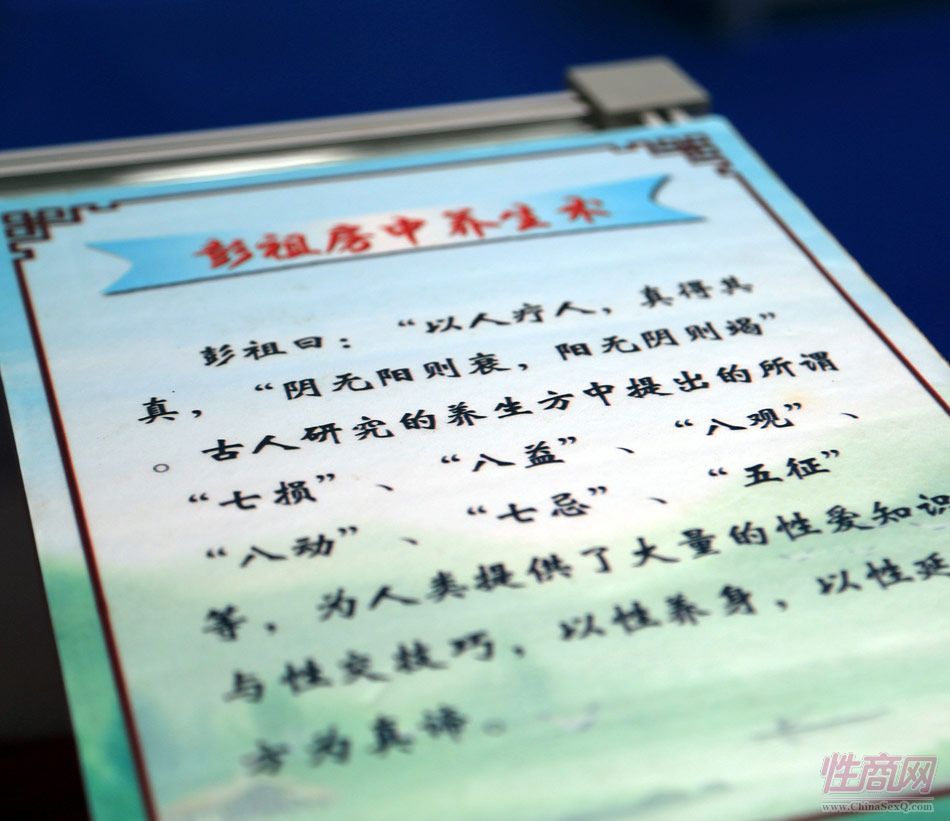 彭祖房中养生术
彭祖曰：“以人疗人，真得其
真，“阴无阳则衰，阳无阴则竭”
。古人研究的养生方中提出的所谓
“七损”、“八益”、“八观”、
“八动”、“七忌”、“五征”
等，为人类提供了大量的性爱知识
与性交技巧，以性养身，以性延
方为真谛。
性商网
www.ChinaSexQ.com